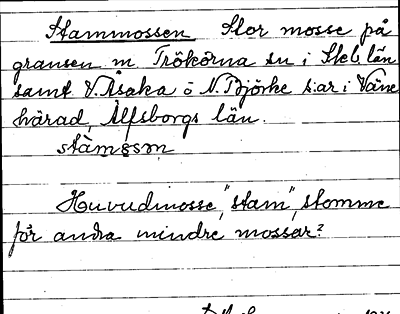 Stammossen Stor mosse på
gränsen m Trökörna su i Skb. län
samt V. Åsaka o N. Björke s:ar i Väne
härad, Älfsborgs län.
stàmǫsǝn
Huvudmosse, "stam", stomme
för andra mindre mossar?